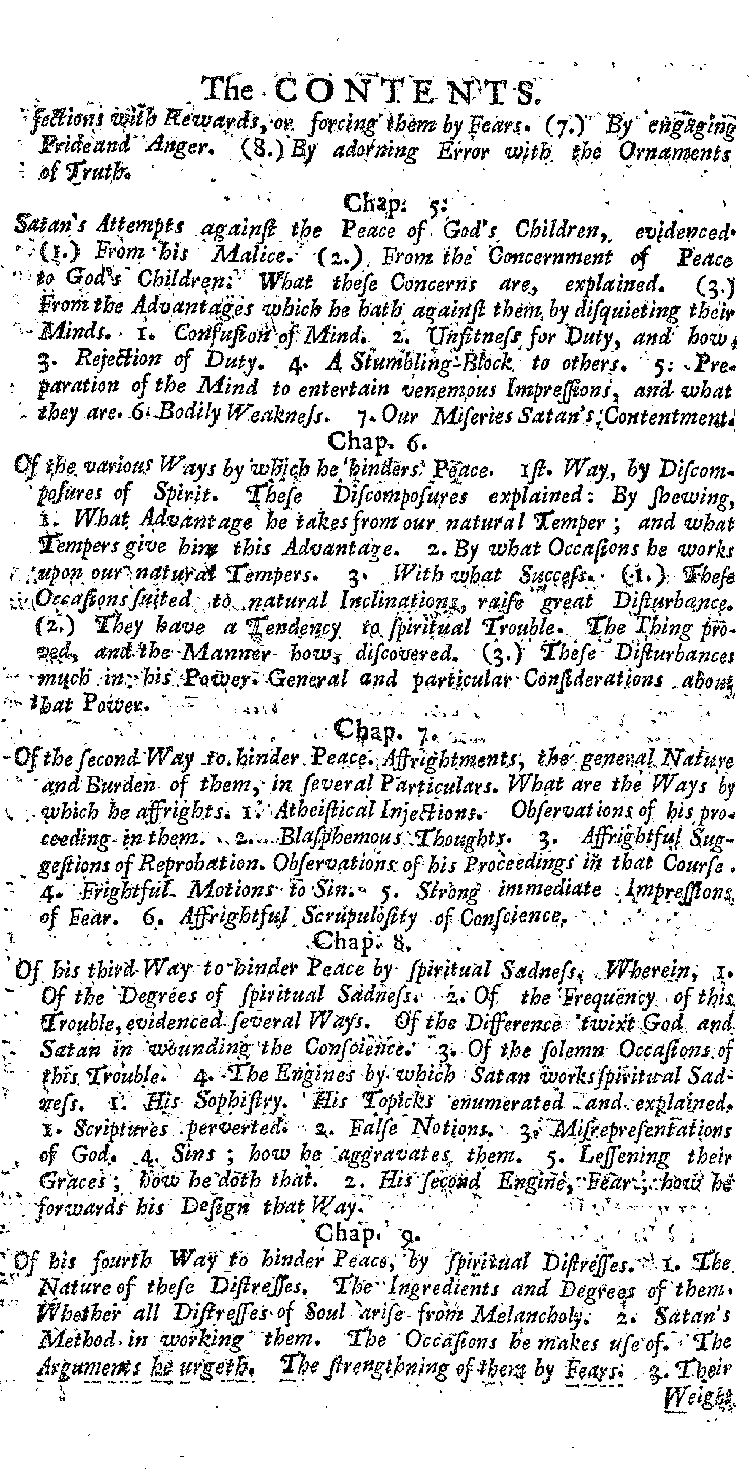 The CONTENTS.
fections with Rewards, or forcing them by Fears. (7.) By engaging
Pride and Anger. (8.) By adorning Error with the Ornaments
of Truth.
Chap. 5.
Satan's Attempts againſt the Peace of God's Children, evidenced
(1.) From his Malice. (2.) From the Concernment of Peace
to God's Children. What theſe Concerns are, explained. (3.)
From the Advantages which he hath againſt them by diſquieting their
Minds. 1. Confuſion of Mind. 2. Unfitneſs for Duty, and how;
3. Rejection of Duty. 4. A Stumbling-Block to others. 5. Pre-
paration of the Mind to entertain venemous Impreſſions, and what
they are. 6. Bodily Weakneſs. 7. Our Miſeries Satan's Contentment.
Chap. 6.
Of the various Ways by which he hinders Peace. 1ſt. Way, by Diſcom-
poſures of Spirit. Theſe Diſcompoſures explained: By ſhewing,
1. What Advantage he takes from our natural Temper; and what
Tempers give him this Advantage. 2. By what Occaſions he works
upon our natural Tempers. 3. With what Succeſs. (1.) Theſe
Occaſions ſuited to natural Inclinations, raiſe great Diſturbance.
(2.) They have a Tendency to ſpiritual Trouble. The Thing pro-
ved, and the Manner how, diſcovered. (3.) Theſe Diſturbances
much in his Power. General and particular Conſiderations about
that Power.
Chap. 7.
Of the ſecond Way to hinder Peace. Affrightments, the general Nature
and Burden of them, in ſeveral Particulars. What are the Ways by
which he affrights. 1. Atheiſtical Injections. Obſervations of his pro-
ceeding in them. 2. Blaſphemous Thoughts. 3. Affrightful Sug-
geſtions of Reprobation. Obſervations of his Proceedings in that Courſe.
4. Frightful Motions to Sin. 5. Strong immediate Impreſſions
of Fear. 6. Affrightful Scrupuloſity of Conſcience.
Chap. 8.
Of his third Way to hinder Peace by ſpiritual Sadneſs. Wherein, 1.
Of the Degrees of ſpiritual Sadneſs. 2. Of the Frequency of this
Trouble, evidenced ſeveral Ways. Of the Difference 'twixt God and
Satan in wounding the Conſcience. 3. Of the ſolemn Occaſions of
this Trouble. 4. The Engines by which Satan works ſpiritual Sad-
neſs. 1. His Sophiſtry. His Topicks enumerated and explained.
1. Scriptures perverted. 2. Falſe Notions. 3. Miſrepreſentations
of God. 4. Sins; how he aggravates them. 5. Leſſening their
Graces; how he doth that. 2. His ſecond Engine, Fear; how he
forwards his Deſign that Way.
Chap. 9.
Of his fourth Way to hinder Peace, by ſpiritual Diſtreſſes. 1. The
Nature of theſe Diſtreſſes. The Ingredients and Degrees of them.
Whether all Diſtreſſes of Soul ariſe from Melancholy. 2. Satan's
Method in working them. The Occaſions he makes uſe of. The
Arguments he urgeth. The ſtrengthning of them by Fears. 3. Their
Weight